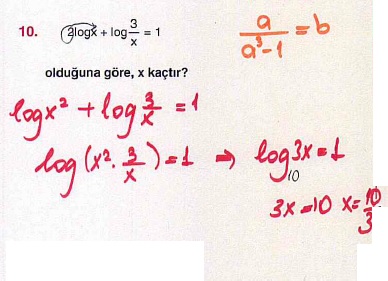 10. 2logx + log 3/x = 1
a/(a³-1) = b
olduğuna göre, x kaçtır?
logx² + log 3/x = 1
log(x² · 3/x) = 1 ⇒ log₁₀3x = 1
3x = 10 x = 10/3